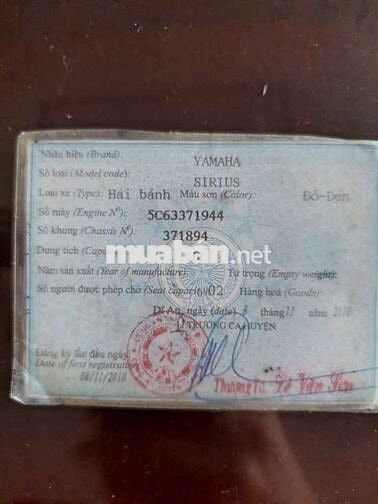 Nhãn hiệu (Brand): YAMAHA
Số loại (Model code): SIRIUS
Loại xe (Type): Hai bánh Màu sơn (Color): Đỏ-Đen
Số máy (Engine Nº): 5C63371944
Số khung (Chassis Nº): 371894
Dung tích
muaban.net
Năm sản xuất (Year of manufacture): Tự trọng (Empty weight):
Số người được phép chở (Seat capacity) 02 Hàng hoá (Goods):
Dĩ An, ngày (date) 8 tháng 11 năm 2010
TRƯỞNG CA HUYỆN
Đăng ký lần đầu ngày
Date of first registration
08/11/2010
Thượng tá Lê Văn